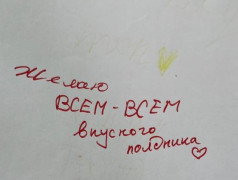 Желаю
ВСЕМ-ВСЕМ
вкусного
полдника